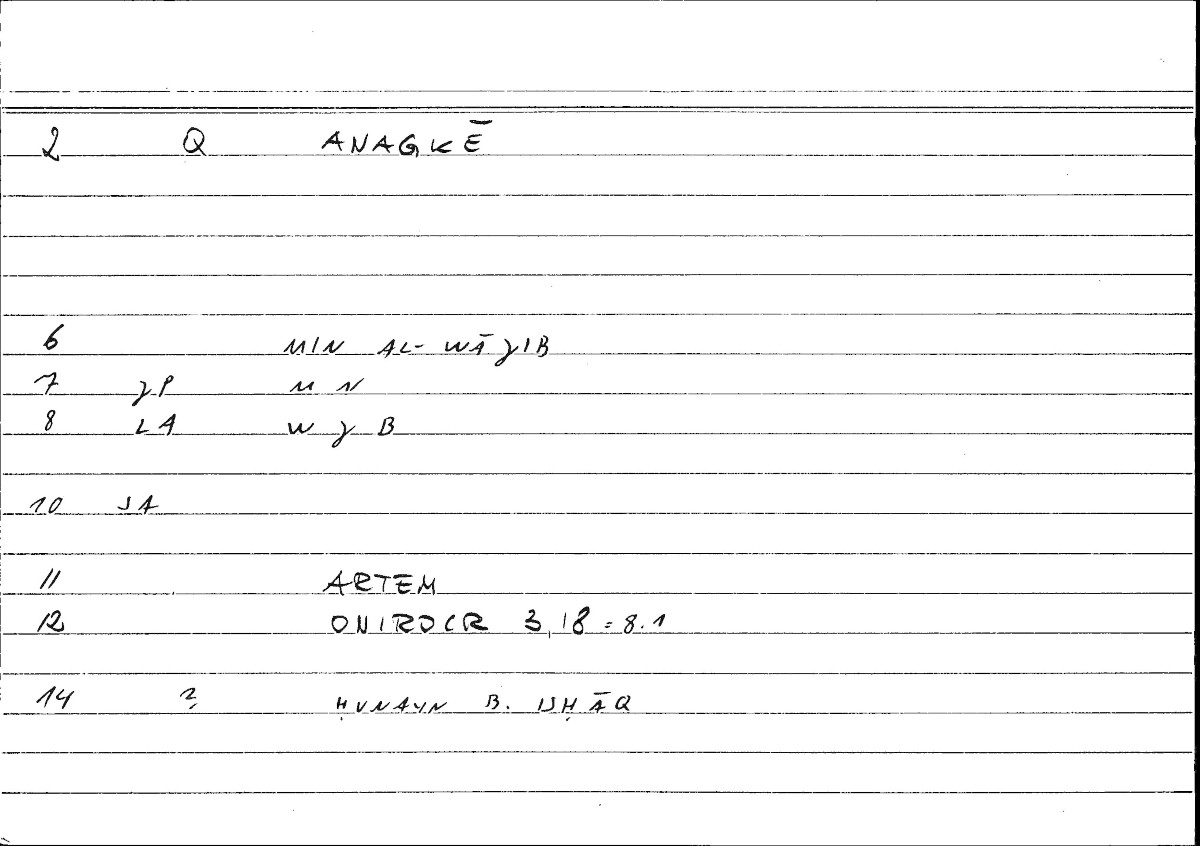 2 Q ANAGKĒ
6 MIN AL-WĀJIB
7 JP M N
8 LA W J B
10 SA
11 ARTEM
12 ONIROCR 3,18 = 8.1
14 ? ḤUNAYN B. ISḤĀQ